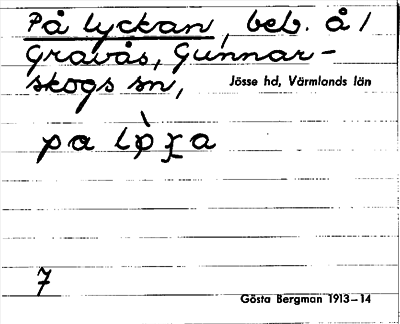 På lyckan, beb. å /
Gravås, Gunnar-
skogs sn, Jösse hd, Värmlands län
pa
7
Gösta Bergman 1913–14